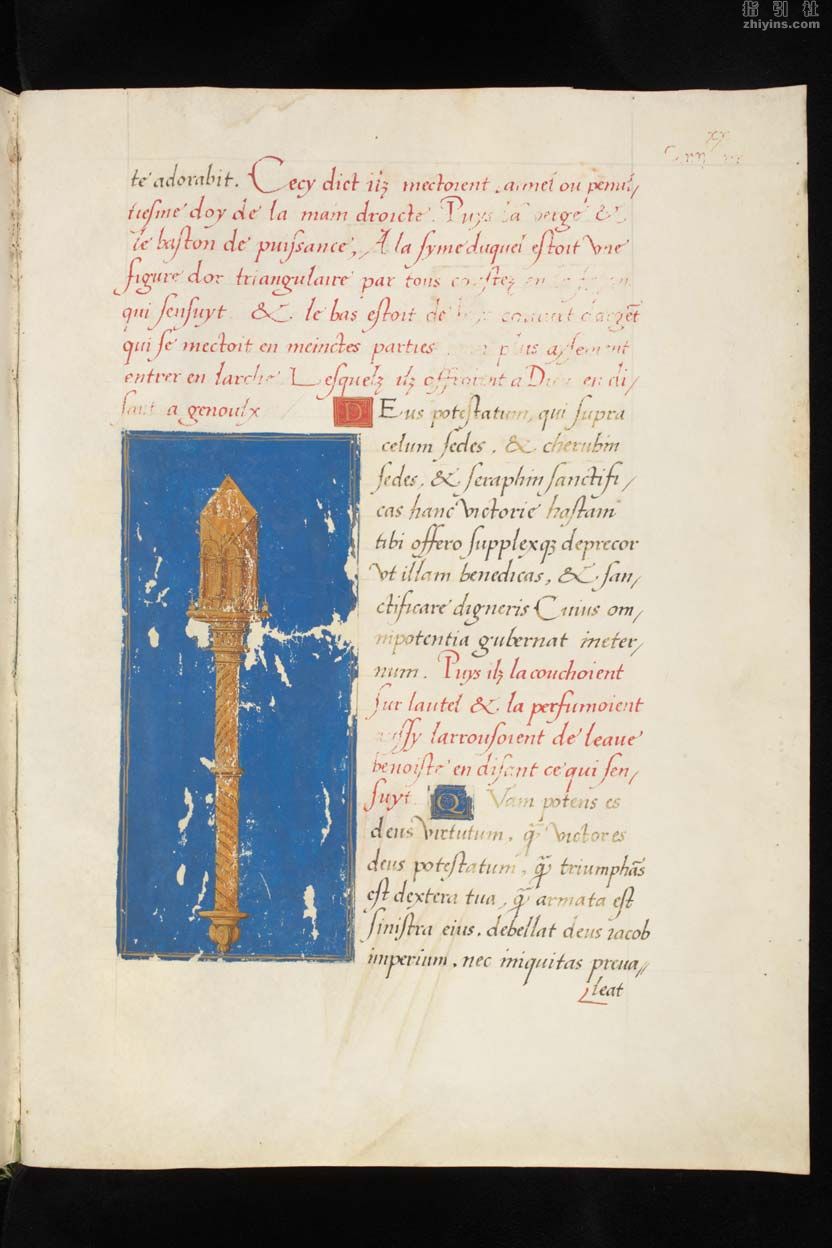 指引社
zhiyins.com
te adorabit. Cecy dict ilz mectoient ou penul,
tiesme doy de la main droicte. Puys la verge &
le baston de puissance, A la syme duquel estoit vne
figure dor triangulaire par tous costez en la
qui sensuyt. & le bas estoit de couuert dargẽt
qui se mectoit en meinctes parties plus aisement
entrer en larche Lesquelz ilz offroient a Dieu en di,
sant a genoulx
DEus potestatum, qui supra
celum sedes, & cherubin
sedes, & seraphin sanctifi,
cas hanc victorie hastam
tibi offero supplexqꝫ deprecor
vt illam benedicas, & san,
ctificare digneris Cuius om,
nipotentia gubernat ineter,
num. Puys ilz la couchoient
sur lautel & la perfumoient
aussy larrousoient de leaue
benoiste en disant ce qui sen,
suyt. QVam potens es
deus virtutum, q̃ victores
deus potestatum, q̃ triumphãs
est dextera tua, q̃ armata est
sinistra eius. debellat deus iacob
imperium, nec iniquitas preua,,
leat